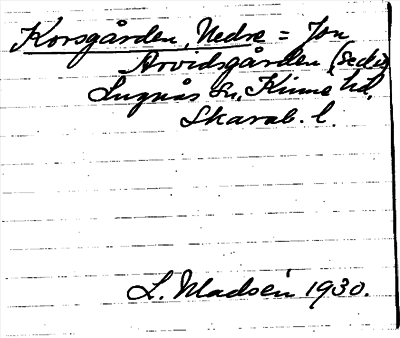 Korsgården, Nedre = Jon
Arvidsgården (sed
Lugnås sn, Kinne hd,
Skarab. l.
L. Madsén 1930.